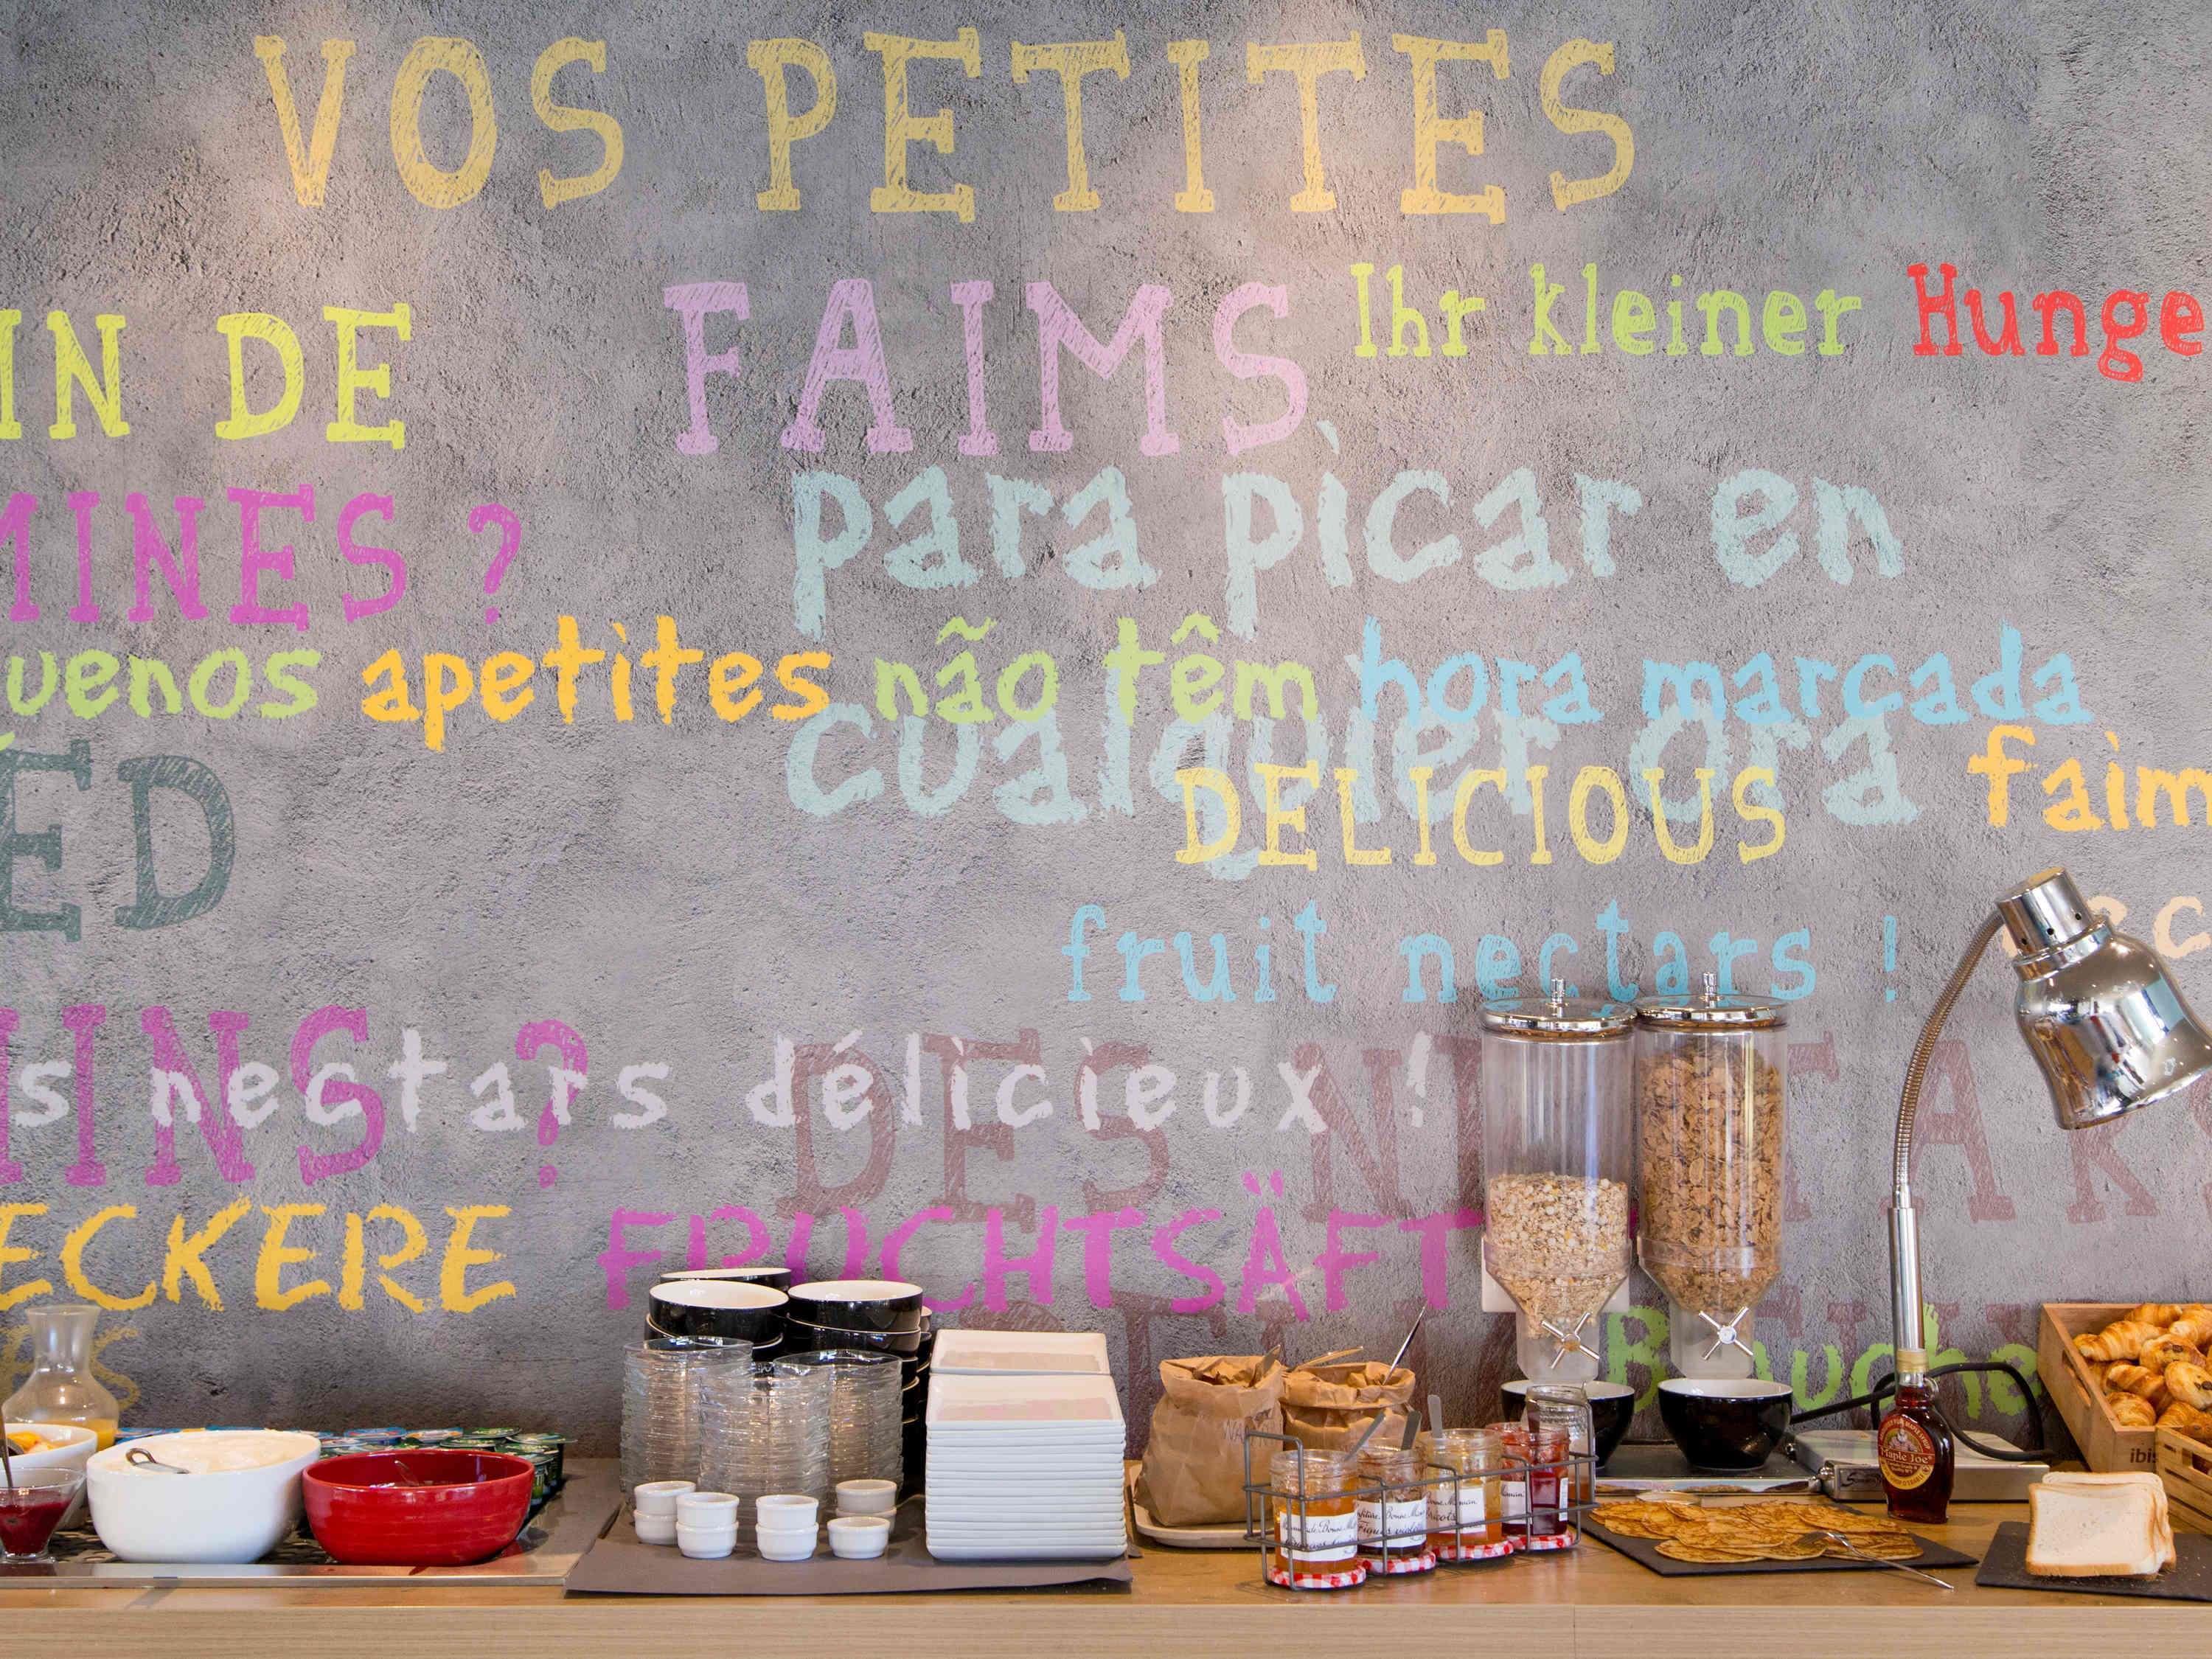 VOS PETITES
FAIMS
Ihr kleiner Hunge
IN DE
MINES ?
para picar en
uenos apetites não têm hora marcada
cualquier ora
DELICIOUS
faim
ED
fruit nectars !
INS ?
s nectars délicieux !
DES
ECKERE FRUCHTSÄFT
Bouche
Maple Joe
Bonne
ibis